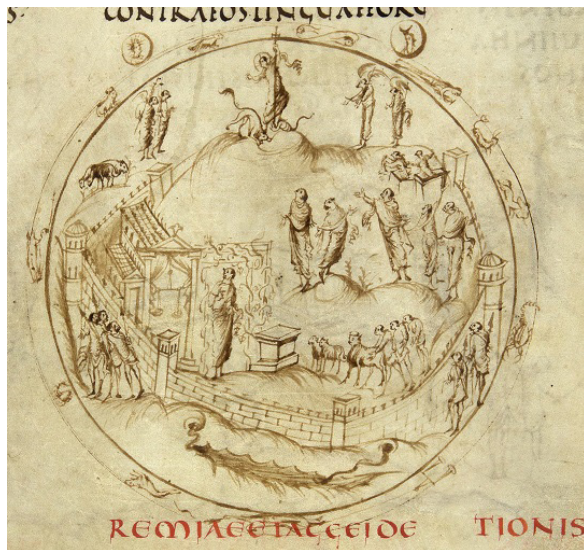 S: CONTRAEOSLINGUAEEORU
REMIAEETAGGEIDE TIONIS